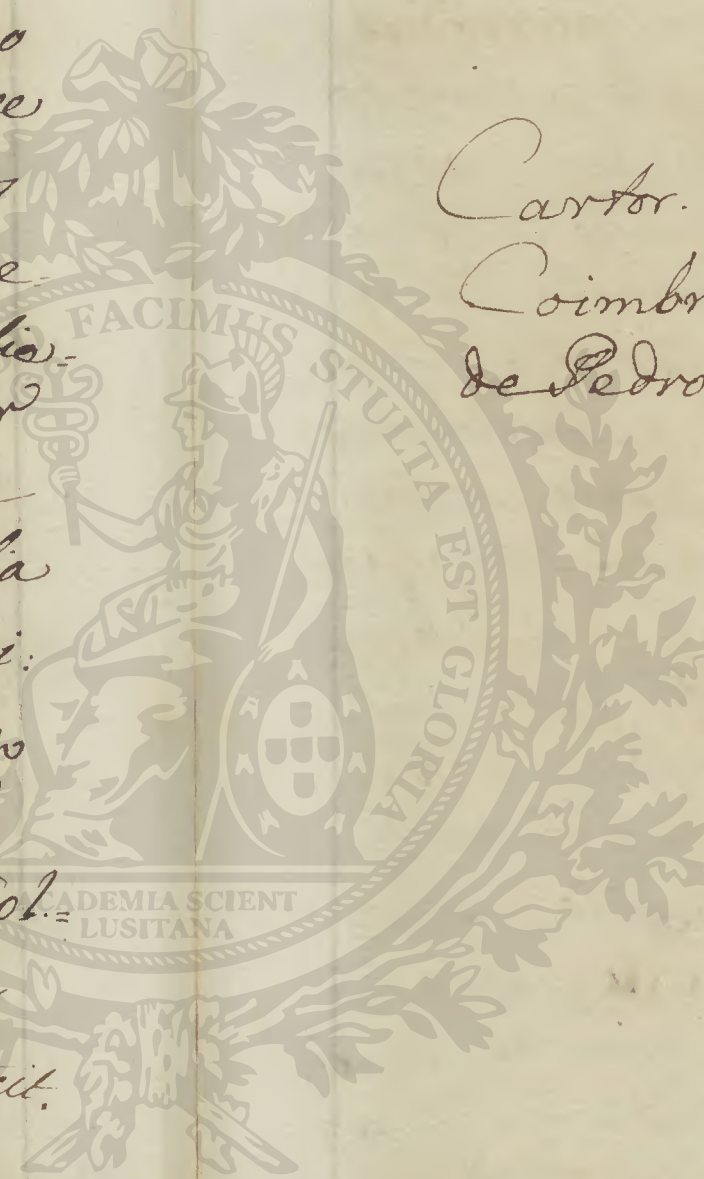 Cartor.
Coimbr
de Pedro
FACIMUS STULTA EST GLORIA
ACADEMIA SCIENT
LUSITANA
o
e
e
lia
ia
i:
ol.=
cit.